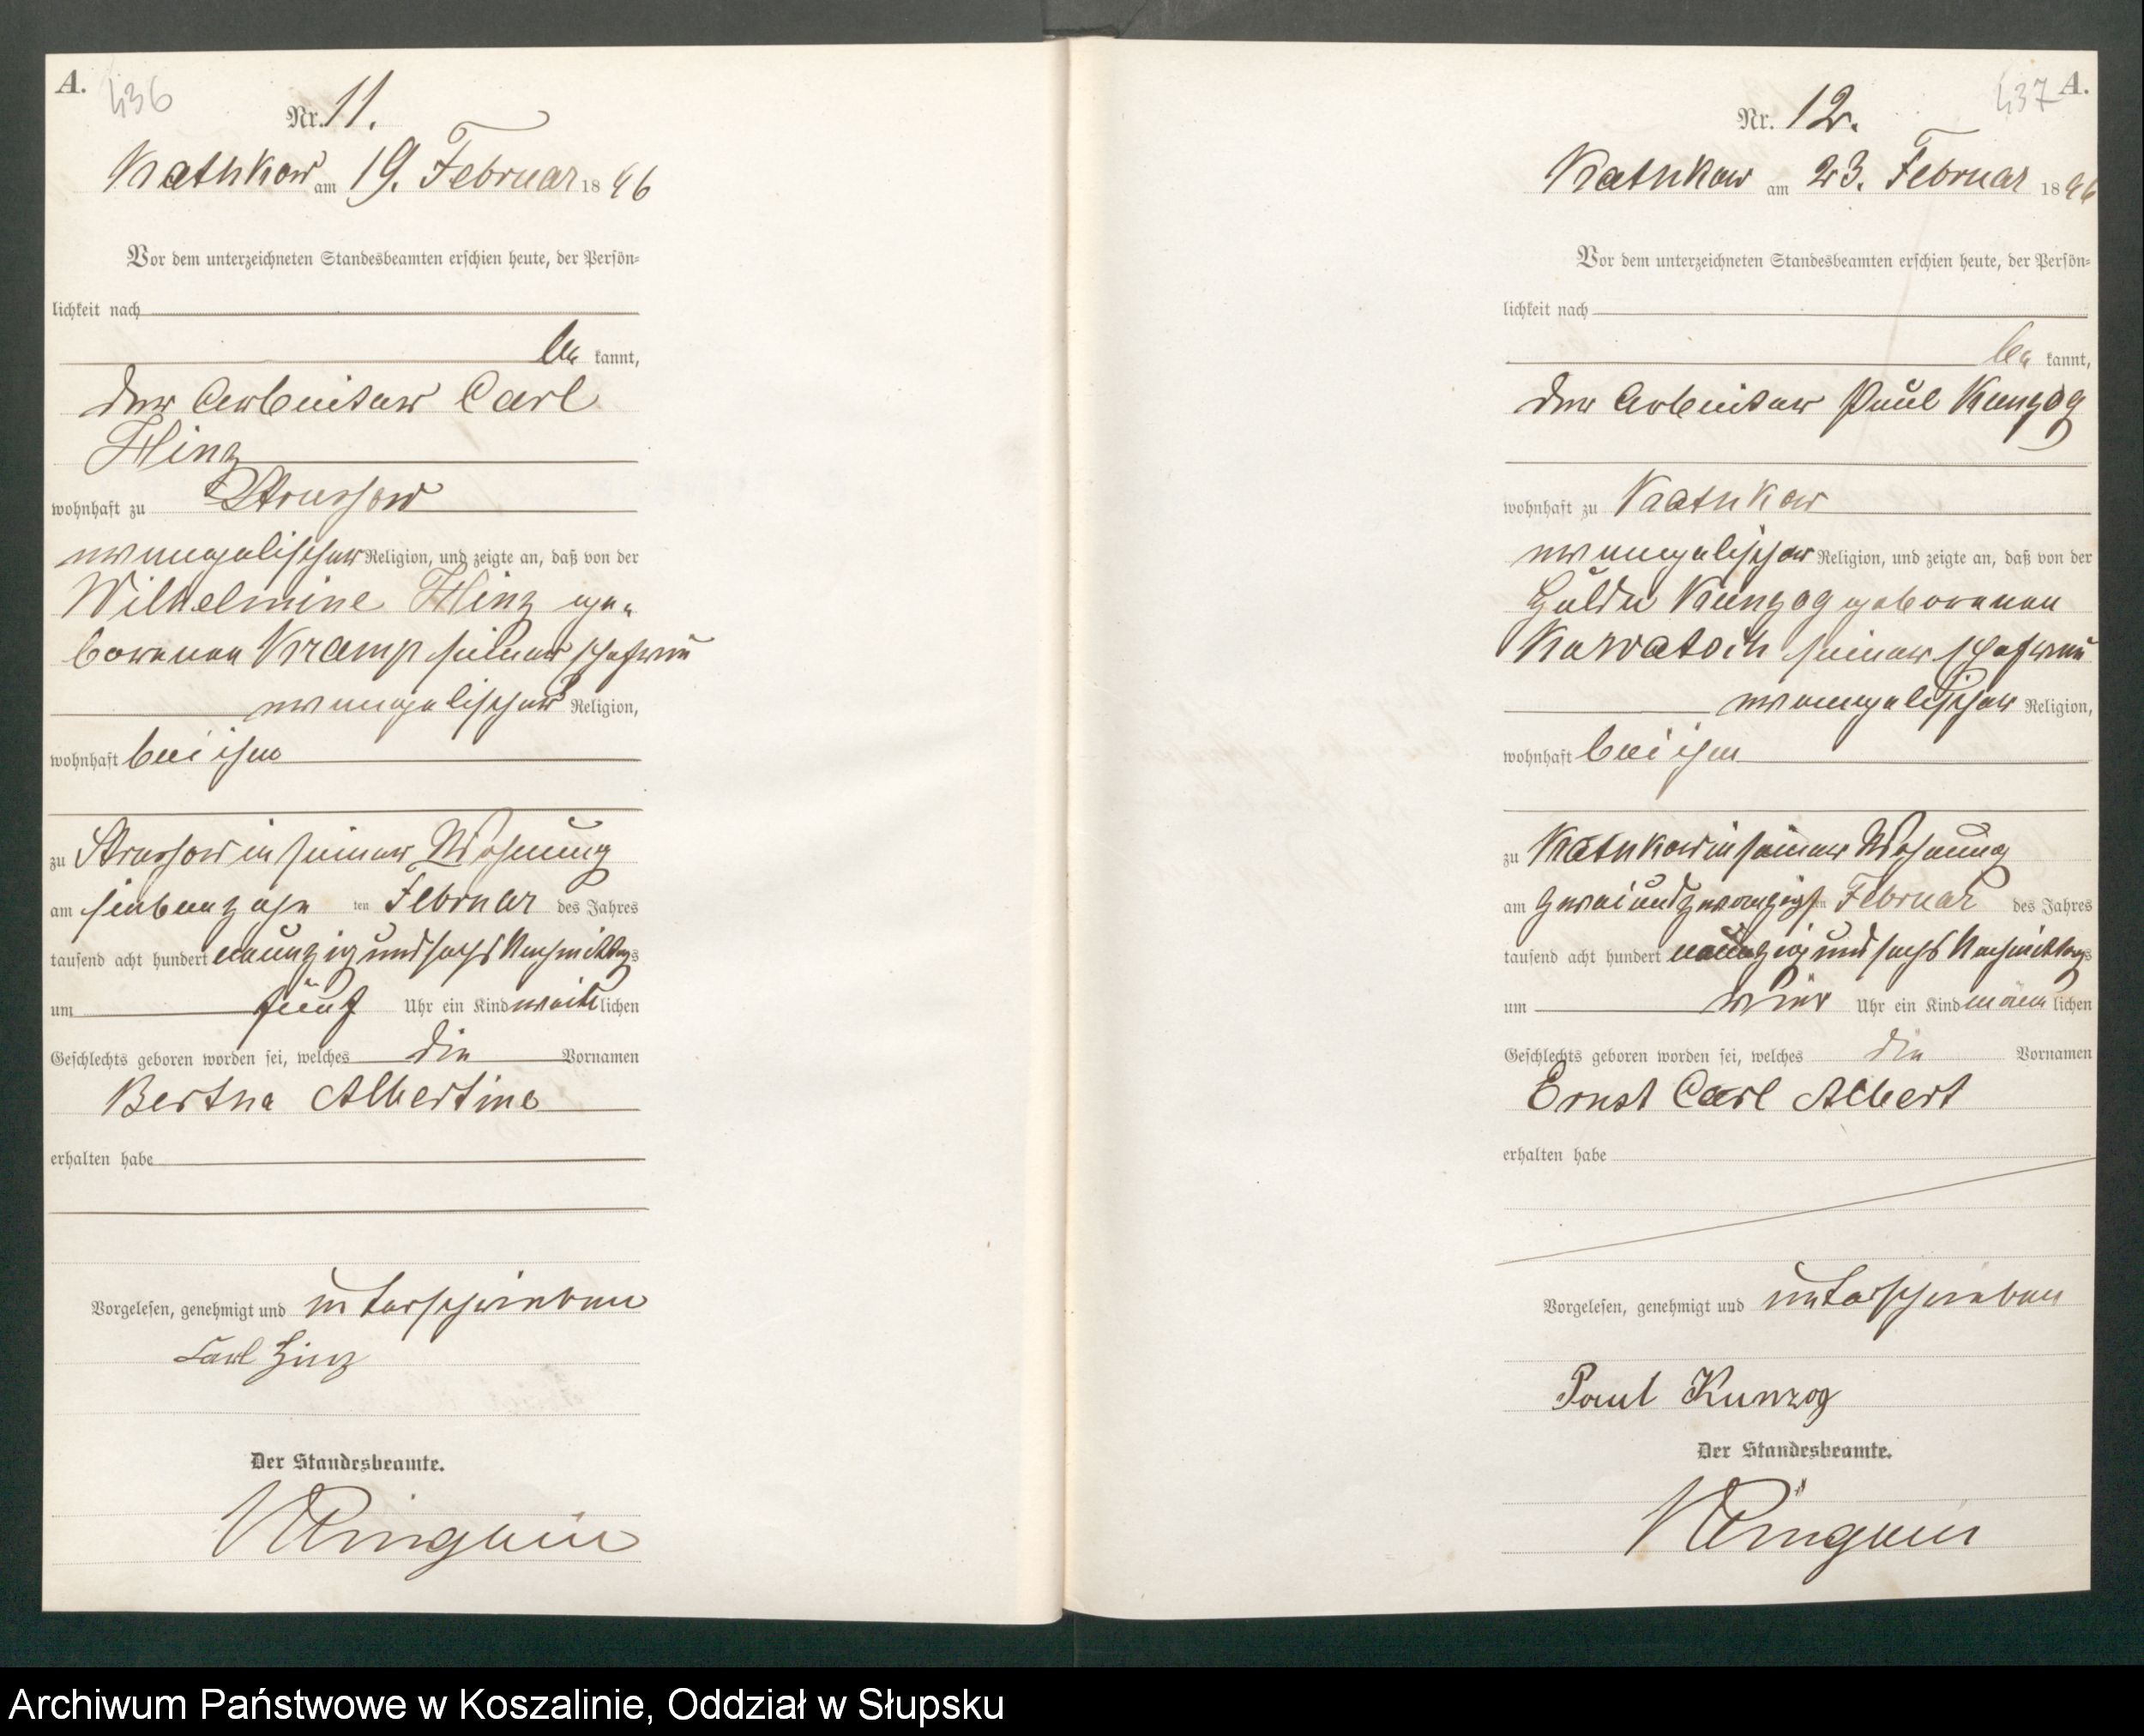 A.
436
Nr. 11.
Kathkow am 19. Februar 1896
Vor dem unterzeichneten Standesbeamten erschien heute, der Persön-
lichkeit nach
be kannt,
der Arbeiter Carl
Hinz
wohnhaft zu Strussow
evangelischer Religion, und zeigte an, daß von der
Wilhelmine Hinz ge-
borenen Kramp seiner Ehefrau
evangelischer Religion,
wohnhaft bei ihm
zu Strussow in seiner Wohnung
am siebenzehn ten Februar des Jahres
tausend acht hundert neunzig und sechs Nachmittags
um fünf Uhr ein Kind weiblichen
Geschlechts geboren worden sei, welches die Vornamen
Bertha Albertine
erhalten habe
Vorgelesen, genehmigt und unterschrieben
Carl Hinz
Der Standesbeamte.
437 A.
Nr. 12.
Kathkow am 23. Februar 1896
Vor dem unterzeichneten Standesbeamten erschien heute, der Persön-
lichkeit nach
be kannt,
der Arbeiter Paul Kunzog
wohnhaft zu Kathkow
evangelischer Religion, und zeigte an, daß von der
Hulda Kunzog geborenen
seiner Ehefrau
evangelischer Religion,
wohnhaft bei ihm
zu Kathkow in seiner Wohnung
am zweiundzwanzigsten Februar des Jahres
tausend acht hundert neunzig und sechs Nachmittags
um vier Uhr ein Kind männlichen
Geschlechts geboren worden sei, welches die Vornamen
Ernst Carl Albert
erhalten habe
Vorgelesen, genehmigt und unterschrieben
Paul Kunzog
Der Standesbeamte.
Archiwum Państwowe w Koszalinie, Oddział w Słupsku